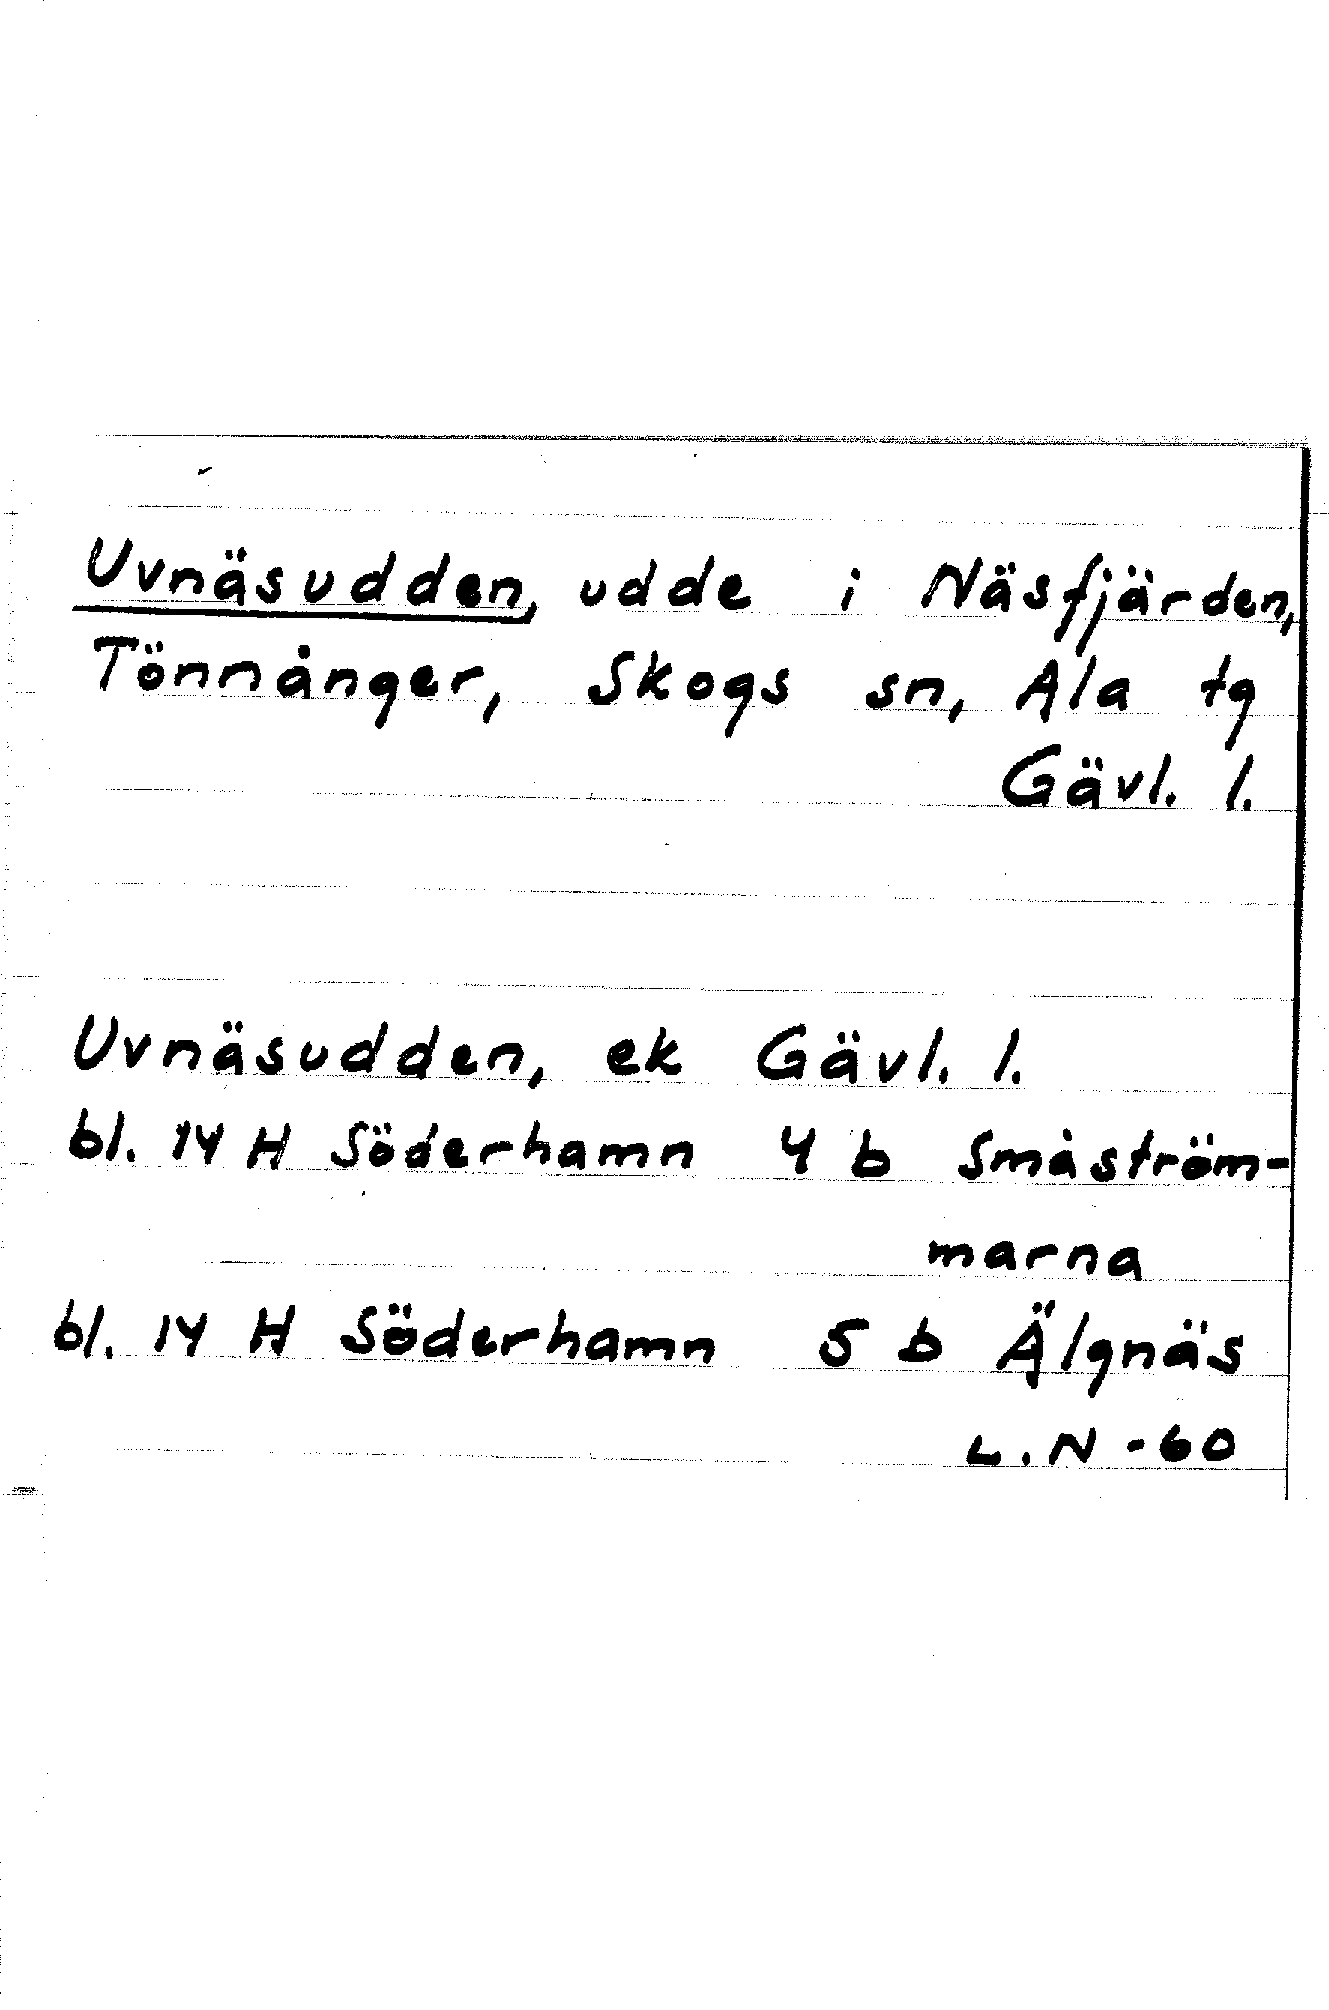 Uvnäsudden, udde i Näsfjärden,
Tönnånger, Skogs sn, Ala tg
Gävl. l.
Uvnäsudden, ek Gävl. l.
bl. 14 H Söderhamn 4 b Småström-
marna
bl. 14 H Söderhamn 5 b Älgnäs
L.N -60